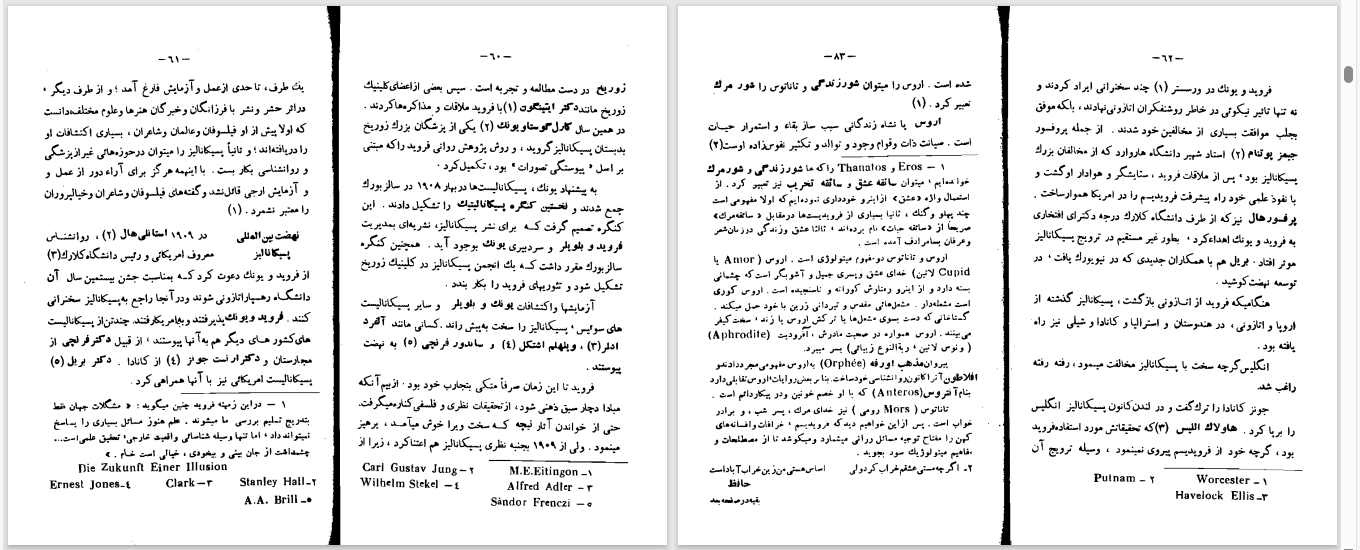 —۶۰—
زوریخ در دست مطالعه و تجربه است . سپس بعضی ازاعضای کلینیك
زوریخ مانند دکتر ایتینگون (۱) با فروید ملاقات و مذاکره ها کردند .
در همین سال کارل گوستاو یونك (۲) یکی از پزشگان بزرك زوریخ
بدبستان پسیکانالیز گروید ، و روش پژوهش روانی فروید راکه مبتنی
بر اصل « پیوستگی تصورات » بود ، تکمیل کرد .
به پیشنهاد یونك ، پسیکانالیست‌ها در بهار ۱۹۰۸ در سالز بورك
جمع شدند و نخستین کنگره پسیکانالیتیك را تشکیل دادند . این
کنگره تصمیم گرفت کـه برای نشر پسیکانالیز، نشریه‌ای بمدیریت
فروید و بلویلر و سردبیری یونك بوجود آید . همچنین کنگره
سالز بورك مقرر داشت که یك انجمن پسیکانالیز در کلینیك زوریخ
تشکیل شود و تئوریهای فروید را بکار بندد .
آزمایشها و اکتشافات یونك و بلویلر و سایر پسیکانالیست
های سوئیس ، پسیکانالیز را سخت به پیش راند . کسانی مانند آلفرد
ادلر (۳) ، ویلهلم اشتکل (٤) و ساندور فرنچی (۵) به نهضت
پیوستند .
فروید تا این زمان صرفاً متکی بتجارب خود بود . از بیم آنکه
مبادا دچار سبق ذهنی شود ، از تحقیقات نظری و فلسفی کناره میگرفت.
حتی از خواندن آثار نیچه کـه سخت ویرا خوش میآمـد ، پرهیز
مینمود . ولی از ۱۹۰۹ بجنبه نظری پسیکانالیز هم اعتنا کرد ، زیرا از
۱— M.E.Eitingon ۲ — Carl Gustav Jung
۳ — Alfred Adler ٤ — Wilhelm Stekel
۵ — Sàndor Frenczi
—۶۱—
یك طرف، تا حدی از عمل و آزمایش فارغ آمد ؛ و از طرف دیگر ،
در اثر حشر و نشر با فرزانگان و خبرگان هنرها و علوم مختلف، دانست
که اولا پیش از او فیلسوفان و عالمان و شاعران ، بسیاری اکتشافات او
را دریافته‌اند ؛ و ثانیاً پسیکانالیز را میتوان در حوزه‌هائی غیر از پزشگی
و روانشناسی بکار بست . با اینهمه هرگز برای آراء دور از عمل و
و آزمایش ارجی قائل نشد و گفته‌های فیلسوفان و شاعران و خیالپروران
را معتبر نشمرد . (۱)
نهضت بین‌المللی پسیکانالیز
در ۱۹۰۹ استانلی هال (۲) ، روانشناس
معروف امریکائی و رئیس دانشگاه کلارك (۳)
از فروید و یونك دعوت کرد کـه بمناسبت جشن بیستمین سال آن
دانشگـاه رهسپار اتازونی شوند و در آنجا راجع به پسیکانالیز سخنرانی
کنند . فروید و یونك پذیرفتند و به امریکا رفتند. چندتن از پسیکانالیست
های کشور هـای دیگر هم به آنها پیوستند ، از قبیل دکتر فرنچی از
مجارستان و دکتر ارنست جونز (٤) از کانادا . دکتر بریل (۵)
پسیکانالیست امریکائی نیز با آنها همراهی کرد .
۱ — در این زمینه فروید چنین میگوید : « مشکلات جهان فقط
بتدریج تسلیم بررسی ما میشوند . علم هنوز مسائل بسیاری را پاسخ
نمیتواند داد ، اما تنها وسیله شناسائی واقعیت خارجی، تحقیق علمی است...
چشمداشت از جان بینی و بیخودی، خیالی است خـام . »
Die Zukunft Einer Illusion
۲— Stanley Hall ۳— Clark ٤— Ernest Jones
۵— A.A. Brill
—۶۲—
فروید و یونك در ورسستر (۱) چند سخنرانی ایراد کردند و
نه تنها تاثیر نیکوئی در خاطر روشنفکران اتازونی نهادند ، بلکه موفق
بجلب موافقت بسیاری از مخالفین خود شدند . از جمله پروفسور
جیمز پوتنام (۲) استاد شهیر دانشگاه هاروارد که از مخالفان بزرك
پسیکانالیز بود ، پس از ملاقات فروید ، ستایشگر و هوادار او گشت و
با نفوذ علمی خود راه پیشرفت فرویدیسم را در امریکا هموار ساخت .
پرفسور هال نیز که از طرف دانشگاه کلارك درجه دکترای افتخاری
به فروید و یونك اهداء کرد ، بطور غیر مستقیم در ترویج پسیکانالیز
موثر افتاد . بریل هم با همکاران جدیدی که در نیویورك یافت ، در
توسعه نهضت کوشید .
هنگامیکه فروید از اتـازونی بازگشت ، پسیکانالیز گذشته از
اروپا و اتازونی ، در هندوستان و استرالیا و کانادا و شیلی نیز راه
یافته بود .
انگلیس گرچه سخت با پسیکانالیز مخالفت مینمود ، رفته رفته
راغب شد.
جونز کانادا را ترك گفت و در لندن کانون پسیکانالیز انگلیس
را برپا کرد . هاولاك الیس (۳) که تحقیقاتش مورد استفاده فروید
بود ، گرچه خود از فرویدیسم پیروی نمینمود ، وسیله ترویج آن
۱ — Worcester ۲ — Putnam
۳— Havelock Ellis
—۸۳—
شده است . اروس را میتوان شور زندگی و تاناتوس را شور مرك
تعبیر کرد . (۱)
اروس یا نشاه زندگانی سبب ساز بقاء و استمرار حیـات
است . صیانت ذات و قوام وجود و توالد و تکثیر نفوس زاده اوست (۲)
۱ — Eros و Thanatos را که ما شور زندگی و شور مرك
خوانده‌ایم ، میتوان سائقه عشق و سائقه تخریب نیز تعبیر کرد . از
استعمال واژه «عشق» از اینرو خودداری نموده‌ایم که اولا مفهومی است
چند پهلو و گنك ، ثانیا بسیاری از فرویدیست‌ها در مقابل « سائقه مرك»
صریحاً از «سائقه حیات» نام برده‌اند ، ثالثا عشق و زندگی در زبان شعر
و عرفان بسا مرادف آمده است .
اروس و تاناتوس دو مفهوم میتولوژی است . اروس (Amor یا
Cupid لاتین) خدای عشق و پسری جمیل و آشوبگر است که چشمانی
بسته دارد و از اینرو رفتارش کورانه و ناسنجیده است . اروس کوری
است مشعله‌دار . مشعل‌هائی مقدس و تیردانی زرین با خود حمل میکند .
گستاخانی که دست بسوی مشعل‌ها یا ترکش اروس یازند ، سخت کیفر
می‌بینند . اروس همواره در صحبت مادرش ، آفرودیت (Aphrodite)
( ونوس لاتین ، ربة‌النوع زیبائی) بسر میبرد.
پیروان مذهب اورفه (Orphée) به اروس مفهومی مجرد دادند و
افلاطون آنرا کانون روانشناسی خود ساخت. بنا بر بعض روایات، اروس تقابلی دارد
بنام آنتروس (Anteros) که با او خصم خونین و در پیکار دائم است .
تاناتوس ( Mors رومی ) نیز خدای مرك ، پسر شب ، و برادر
خواب است . پس از این خواهیم دید که فرویدیسم ، خرافات و افسانه‌های
کهن را مفتاح توجیه مسائل روانی میشمارد و میکوشد تا از مصطلحات و
مفاهیم میتولوژیك سود بجوید .
۲— اگرچه مستی عشقم خراب کرد ولی اساس هستی من زین خراب آباد است
حافظ
بقیه در صفحه بعد